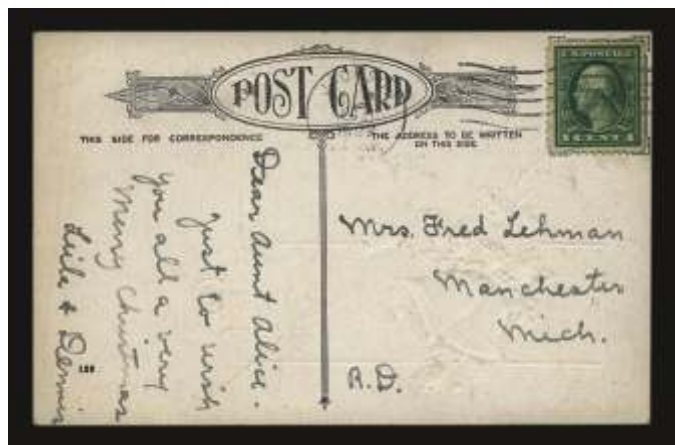 POST CARD
U.S. POSTAGE
1 CENT 1
THIS SIDE FOR CORRESPONDENCE
THE ADDRESS TO BE WRITTEN
ON THIS SIDE
Dear Aunt Alice.
Just to wish
you all a very
Merry Christmas
Leila & Dennis
Mrs. Fred Lehman
Manchester
Mich.
R.D.